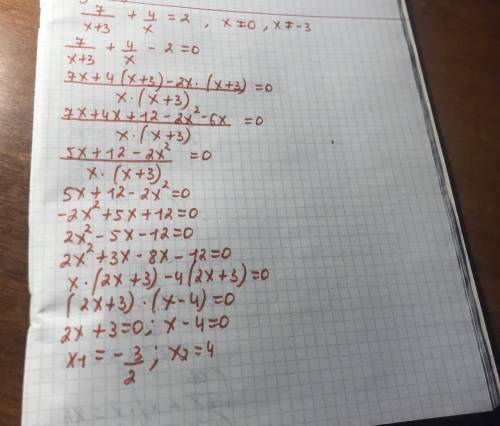 7/(x+3) + 4/x = 2 , x≠0, x≠-3
7/(x+3) + 4/x - 2 = 0
(7x+4(x+3)-2x·(x+3))/(x·(x+3)) = 0
(7x+4x+12-2x²-6x)/(x·(x+3)) = 0
(5x+12-2x²)/(x·(x+3)) = 0
5x+12-2x²=0
-2x²+5x+12=0
2x²-5x-12=0
2x²+3x-8x-12=0
x·(2x+3)-4(2x+3)=0
(2x+3)·(x-4)=0
2x+3=0; x-4=0
x1 = -3/2; x2=4